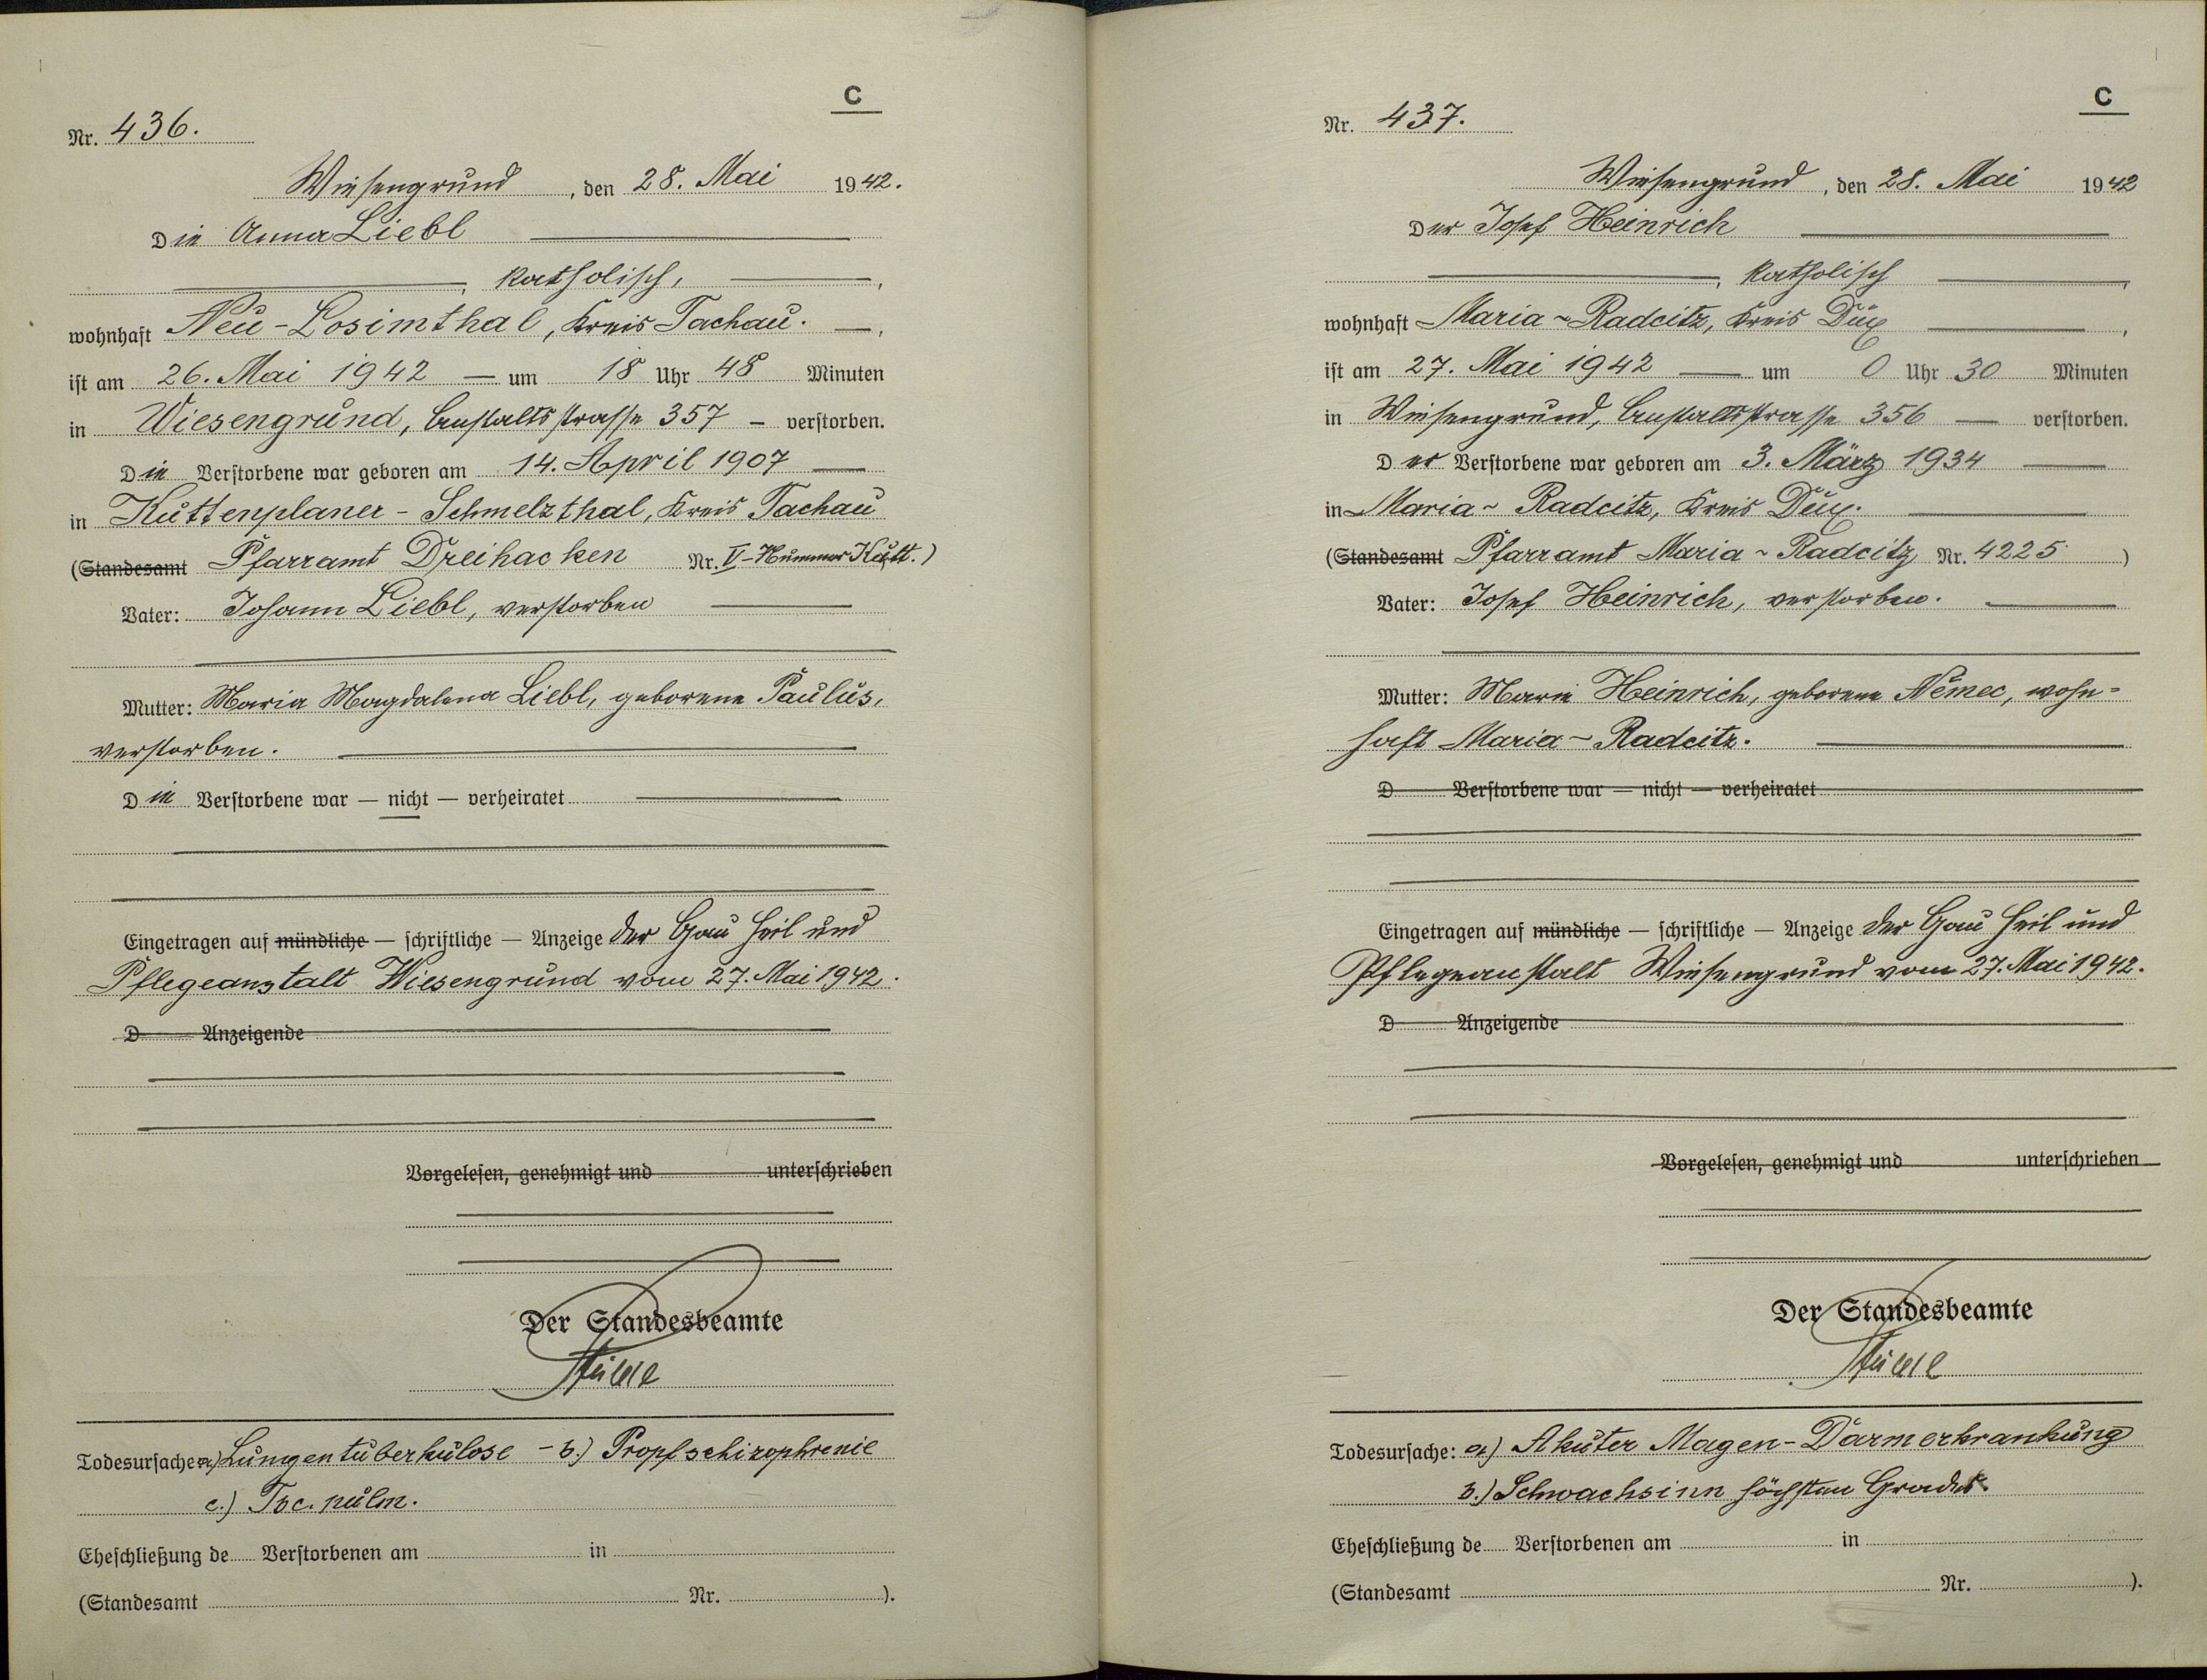 C
Nr. 436.
Wiesengrund, den 28. Mai 1942.
Die Anna Liebl
katholisch,
wohnhaft Neu-Losimthal, Kreis Tachau.
ist am 26. Mai 1942 — um 18 Uhr 48 Minuten
in Wiesengrund, Anstaltsstrasse 357 – verstorben.
Die Verstorbene war geboren am 14. April 1907
in Kuttenplaner-Schmelzthal, Kreis Tachau
(Standesamt Pfarramt Dreihacken Nr. V-Nummer Kutt.)
Vater: Johann Liebl, verstorben
Mutter: Maria Magdalena Liebl, geborene Paulus,
verstorben.
Die Verstorbene war — nicht — verheiratet
Eingetragen auf mündliche — schriftliche — Anzeige der Gau Heil und
Pflegeanstalt Wiesengrund vom 27. Mai 1942.
D Anzeigende
Vorgelesen, genehmigt und unterschrieben
Der Standesbeamte
Todesursache: a) Lungentuberkulose – b.) Propfschizophrenie
c.) Tbc. pulm.
Eheschließung de Verstorbenen am in
(Standesamt Nr. ).
C
Nr. 437.
Wiesengrund, den 28. Mai 1942
Der Josef Heinrich
katholisch
wohnhaft Maria-Radcitz, Kreis Dux
ist am 27. Mai 1942 — um 0 Uhr 30 Minuten
in Wiesengrund, Anstaltsstrasse 356 — verstorben.
Der Verstorbene war geboren am 3. März 1934
in Maria-Radcitz, Kreis Dux.
(Standesamt Pfarramt Maria-Radcitz Nr. 4225)
Vater: Josef Heinrich, verstorben.
Mutter: Marie Heinrich, geborene Němec, wohn-
haft Maria-Radcitz.
D Verstorbene war — nicht — verheiratet
Eingetragen auf mündliche — schriftliche — Anzeige der Gau Heil und
Pflegeanstalt Wiesengrund vom 27. Mai 1942.
D Anzeigende
Vorgelesen, genehmigt und unterschrieben
Der Standesbeamte
Todesursache: a) Akuter Magen-Darmerkrankung
b.) Schwachsinn höchsten Grades.
Eheschließung de Verstorbenen am in
(Standesamt Nr. ).